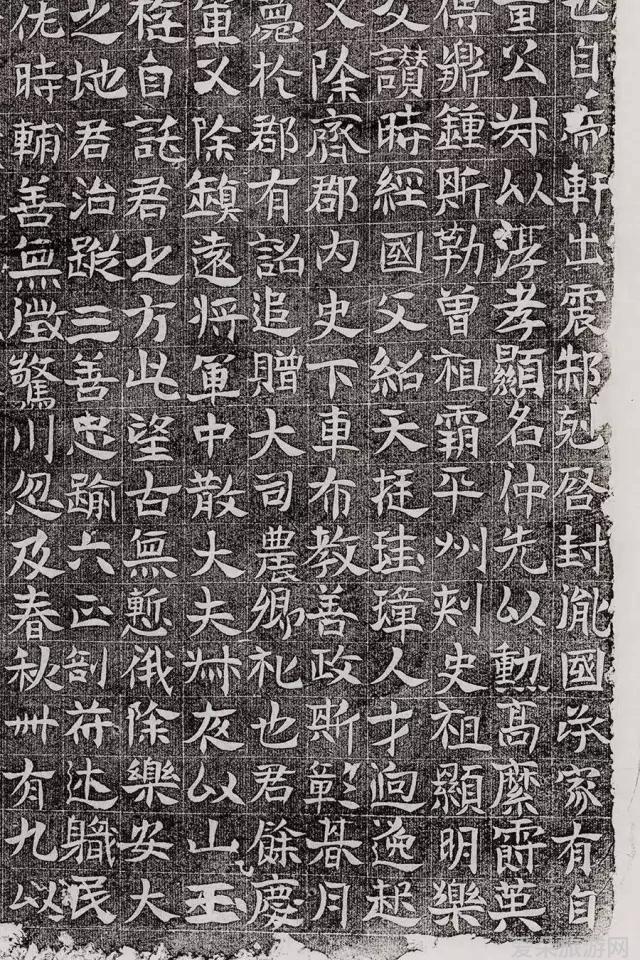 也自帝軒出震鄀剋启封胤國承家有自
公叔以淳孝顯名仲先以勳高縻爵英
傳鼎鍾斯勒曾祖霸平州刺史祖顯明樂
讚時經國父紹天挺珪璋人才逈逸起
又除齊郡內史下車布教善政斯彰朞月
薨於郡有詔追贈大司農卿礼也君餘慶
軍又除鎮遠將軍中散大夫叔夜以山王
自託君之方此望古無慙俄除樂安大
之地君治蹤三善忠踰六正剖苻述職民
佐時輔善無徵驚川忽及春秋卌有九以